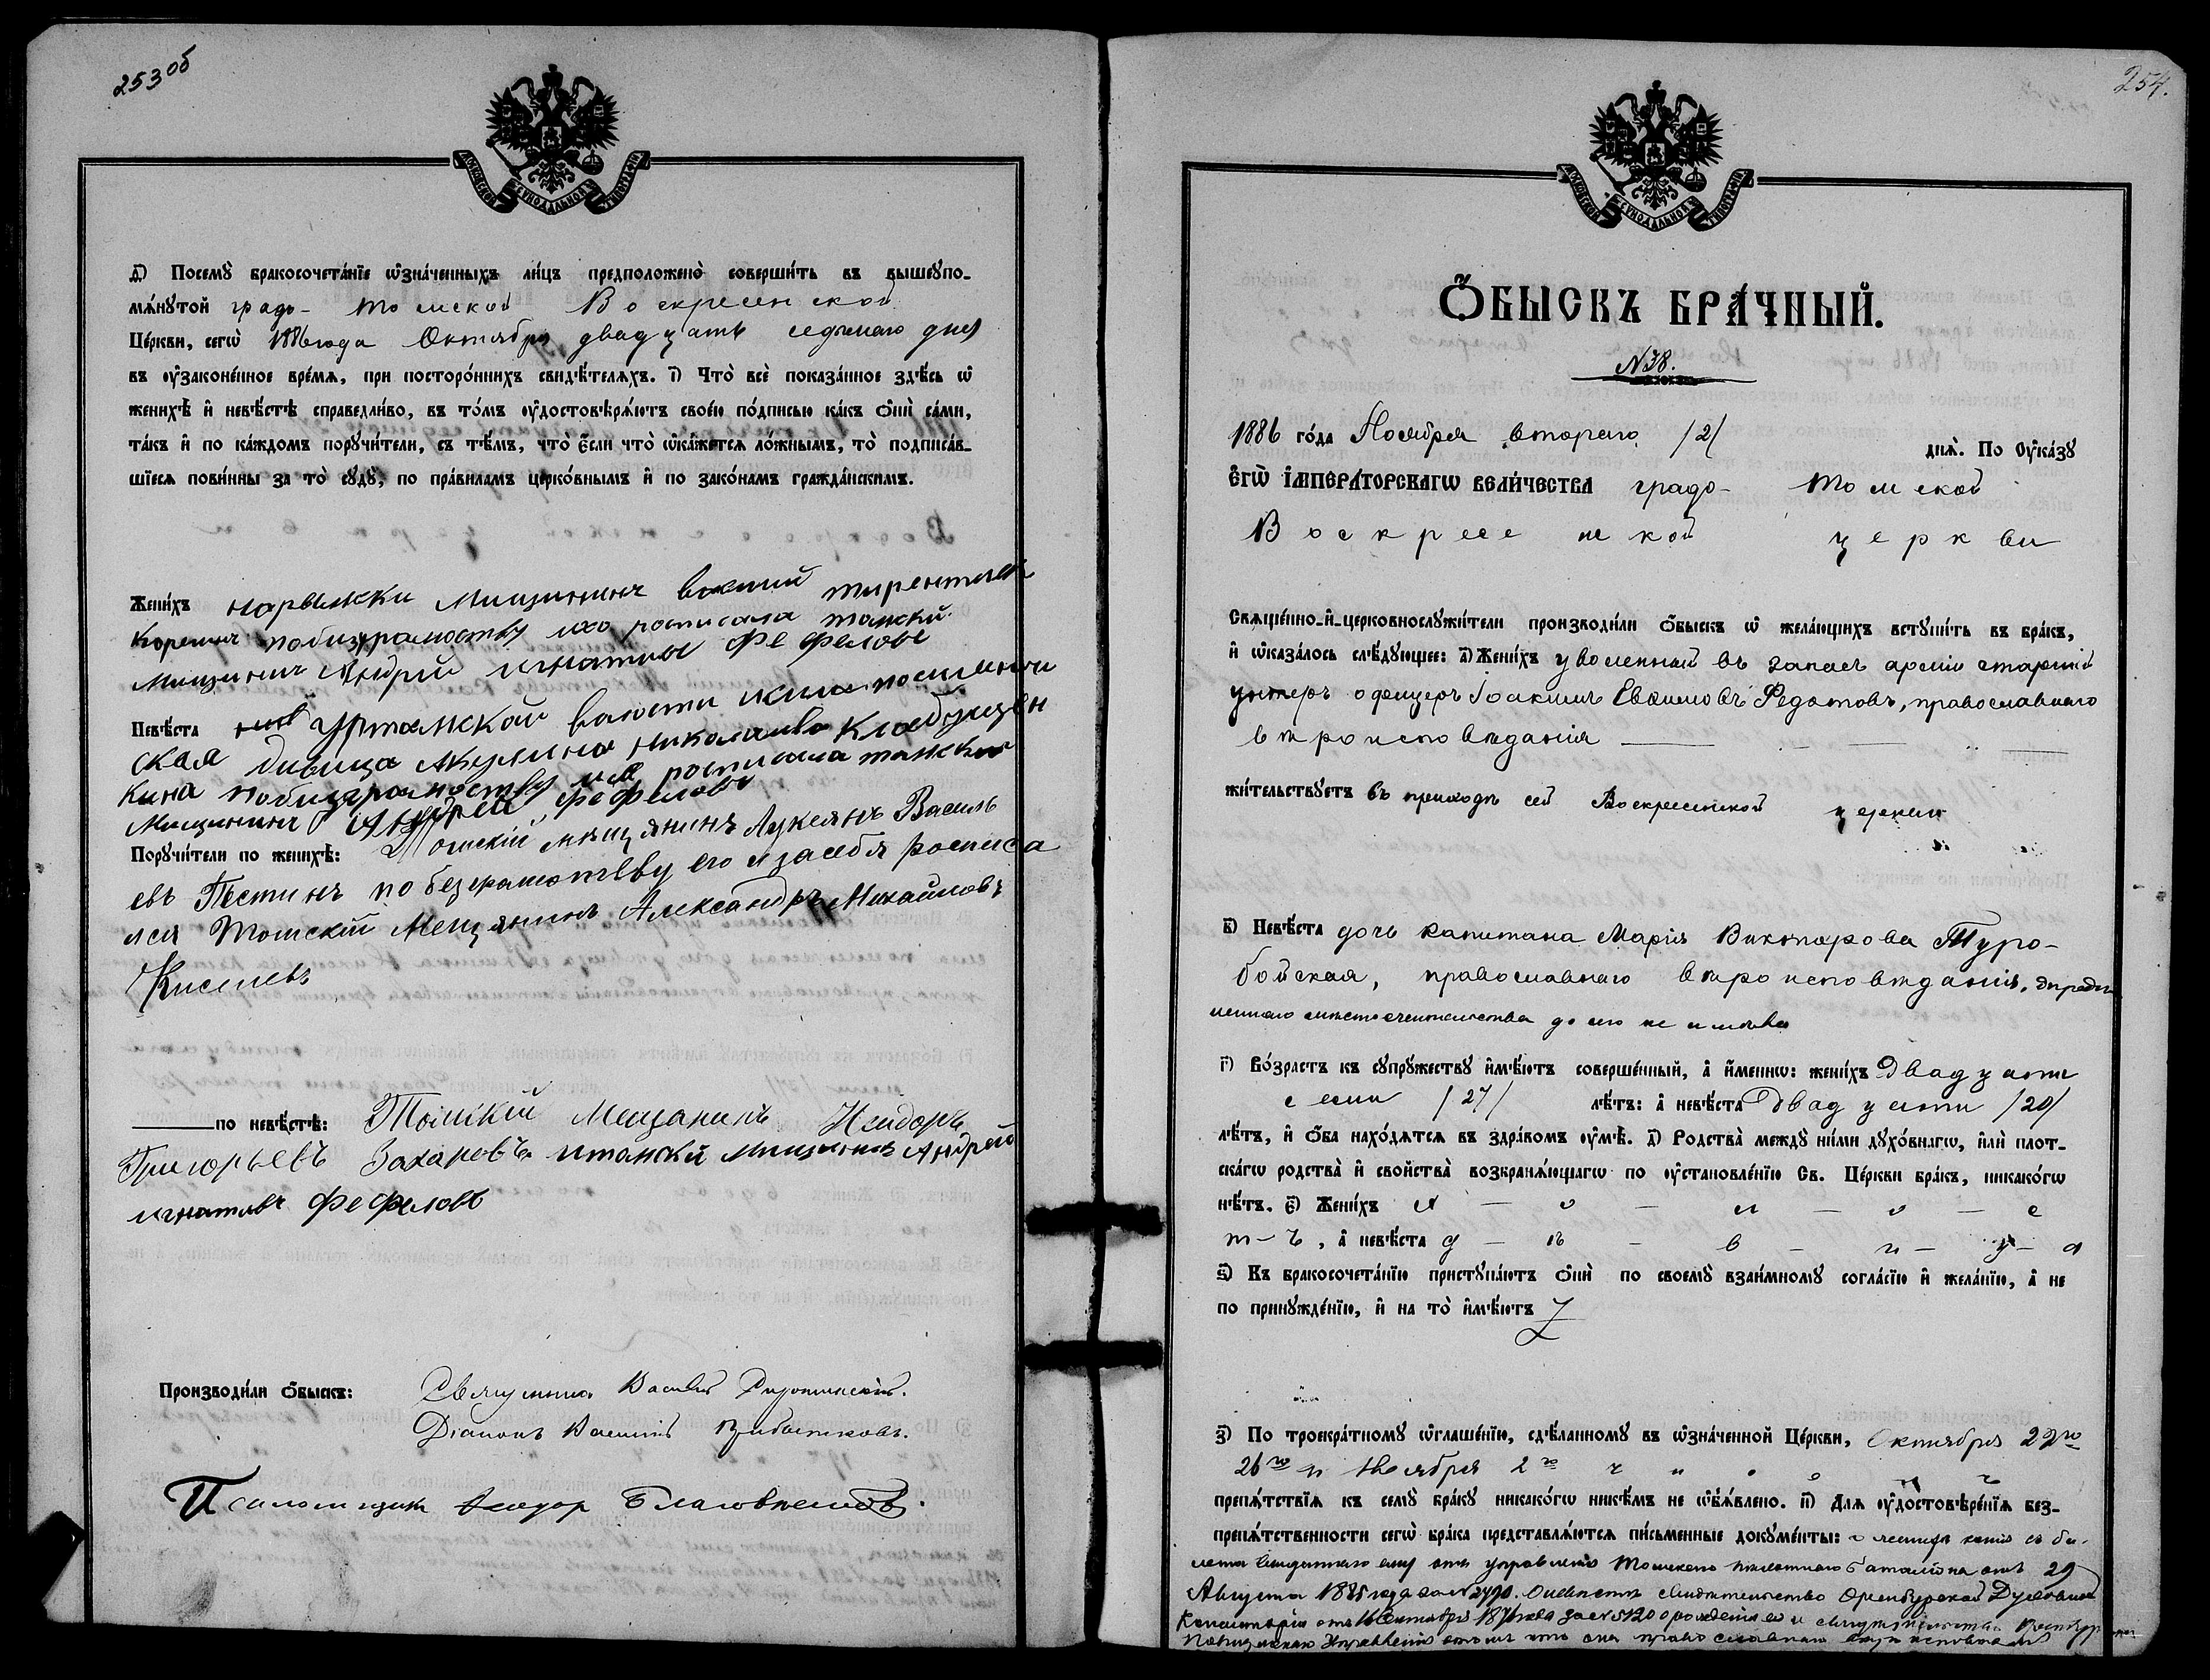 253об
МОСКОВСКОЙ СѴНОДАЛЬНОЙ ТИПОГРАФІИ
д҃) Посемꙋ̀ бракосочета́нїе ѡ҆зна́ченныхъ ли́цъ предположено̀ соверши́ть въ вышеꙋпо-
мѧ́нꙋтой градо- Томской Воскресенской
Це́ркви, сегѡ̀ 1886 года Октября двадцать седьмаго дня
въ ᲂу҆зако́ненное вре́мѧ, при посторо́ннихъ свидѣ́телѧхъ. і҃) Что̀ всѐ пока́занное здѣ́сь ѡ҆
женихѣ̀ и҆ невѣ́стѣ справедли́во, въ то́мъ ᲂу҆достовѣрѧ́ютъ своє́ю по́дписью ка́къ ѻ҆нѝ са́ми,
та́къ и҆ по ка́ждомъ порꙋчи́тели, съ тѣ́мъ, что̀ є҆́сли что̀ ѡ҆ка́жетсѧ ло́жнымъ, то̀ подписа́в-
шїесѧ пови́нны за то̀ сꙋдꙋ̀, по пра́виламъ церко́внымъ и҆ по зако́намъ гражда́нскимъ.
Жени́хъ Мищининъ
Корепинъ побизграмоству ихо росписалса томский
Мищининъ Андрий игнатиы Фефеловъ
Невѣ́ста Уртамской валости
ская дивица Акулина николаива
кина побизграмоству росписалса томский
Мищининъ Андреи Фефеловъ
Порꙋчи́тели по женихѣ̀: Томскій мѣщянинъ Лукеянъ Василь
евъ Пестинъ по безграмотству его и засебя росписа
лся Томскій Мещянинъ Александръ Михайловъ
Киселевъ
по невѣ́стѣ: Томский Мещанинъ Исидоръ
Григорьевъ Захаровъ итомский мищининъ Андрей
игнативъ Фефеловъ
Производи́ли ѻ҆́быскъ: Священникъ Василій Сиротинскій.
Діаконъ Василій Прибытковъ.
Псаломщикъ Ѳеодор Благовѣщенскій.
254.
МОСКОВСКОЙ СѴНОДАЛЬНОЙ ТИПОГРАФІИ
Ѻ҆́БЫСКЪ БРА́ЧНЫЙ.
N38.
1886 го́да Ноября втораго /2/ днѧ̀. По ᲂу҆ка́зꙋ
є҆гѡ̀ і҆мпера́торскагѡ вели́чества градо- Томской
Воскресенской церкви
Свѧще́нно-и҆-церковнослꙋжи́тели производи́ли ѻ҆́быскъ ѡ҆ жела́ющихъ встꙋпи́ть въ бра́къ,
и҆ ѡ҆каза́лось слѣ́дꙋющее: а҃) Жени́хъ уволенный въ запасъ арміи старшій
унтеръ офицеръ Іоакимъ Евфимовъ Федотовъ, православнаго
вѣроисповѣданія
жи́тельствꙋетъ въ приходѣ сей Воскресенской церкви
в҃) Невѣ́ста дочь капитана Марія Викторова Туро-
бойская, православнаго вѣроисповѣданія, опредѣ
леннаго мѣстожительства до сего не имѣла
г҃) Во́зрастъ къ сꙋпрꙋ́жествꙋ и҆мѣ́ютъ соверше́нный, а҆ и҆́меннѡ: жени́хъ двадцати
семи /27/ лѣ́тъ: а҆ невѣ́ста двадцати /20/
лѣ́тъ, и҆ ѻ҆́ба нахо́дѧтсѧ въ здра́вомъ ᲂу҆мѣ̀. д҃) Родства̀ междꙋ̀ ни́ми дꙋхо́внагѡ, и҆лѝ плот-
ска́гѡ родства̀ и҆ сво́йства̀ возкранѧ́ющагѡ по ᲂу҆становле́нїю Св. Це́ркви бра́къ, никако́гѡ
нѣ́тъ. є҃) Жени́хъ х - о - л - о - с
т - ъ, а҆ невѣ́ста д - ѣ - в - и - ц - а
ѕ҃) Къ бракосочета́нїю пристꙋпа́ютъ ѻ҆нѝ по своемꙋ̀ взаи́мномꙋ согла́сїю и҆ жела́нїю, а҆ не
по принꙋжде́нїю, и҆ на то̀ и҆мѣ́ютъ
з҃) По троекра́тномꙋ ѡ҆глаше́нїю, сдѣ́ланномꙋ въ ѡ҆зна́ченной Це́ркви, Октября 22го
26го и Ноября 2го ч и с о
препѧ́тствїѧ къ семꙋ̀ бра́кꙋ никако́гѡ никѣ́мъ не ѡ҆б̾ѧ́влено. и҃) Для ᲂу҆достовѣре́нїѧ без-
препѧ́тственности сегѡ̀ бра́ка представлѧ́ютсѧ пи́сьменные докꙋме́нты: о женихѣ копія съ би-
лета выданнаго ему отъ управленія Томскаго мѣстнаго баталіона отъ 29
Августа 1885 года за N 2490. О невѣстѣ свидѣтельство Оренбургской Духовной
Консисторіи отъ 16 Октября 1876 года за N 5120 о рожденіи ея и свидѣтельство
Полицейскаго Управленія что она православнаго вѣроисповѣданія